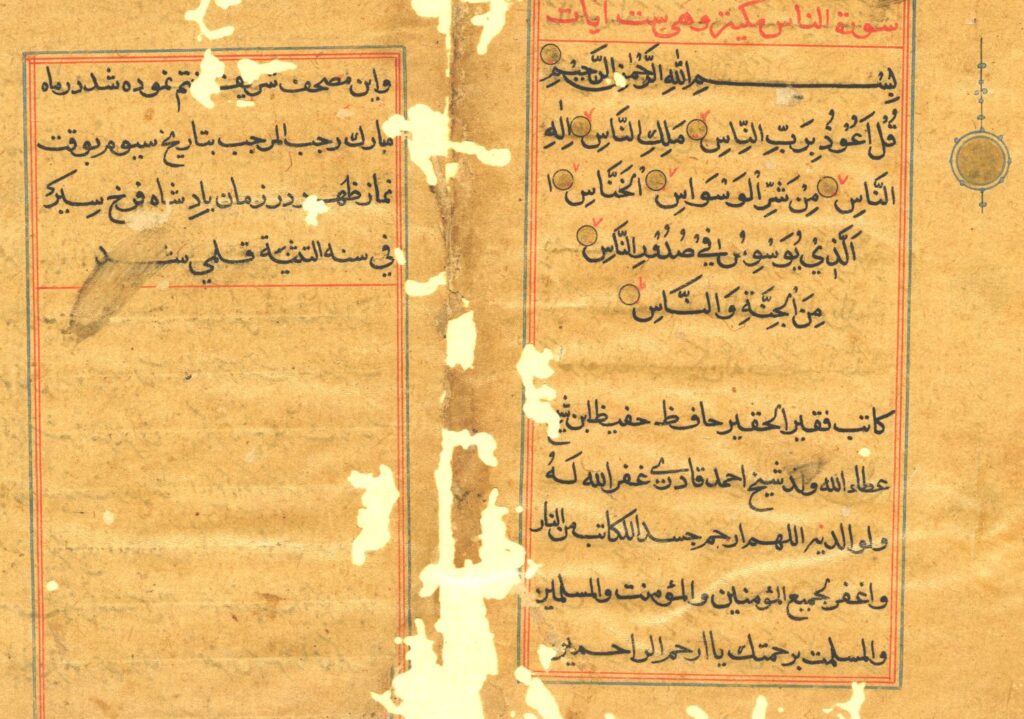 سورة الناس مكية وهي ست ايات
بِسْــــمِ اللهِ الرَّحْمٰنِ الرَّحِيْمِ
قُلْ اَعُوْذُ بِرَبِّ النَّاسِ مَلِكِ النَّاسِ اِلٰهِ
النَّاسِ مِنْ شَرِّ الْوَسْوَاسِ الْخَنَّاسِ
الَّذِيْ يُوَسْوِسُ فِيْ صُدُوْرِ النَّاسِ
مِنَ الْجِنَّةِ وَالنَّاسِ
كاتب فقير الحقير حافظ حفيظ ابن شيخ
عطاء الله ولد شيخ احمد قادري غفر الله لَهُ
ولوالديه اللهم ارحم جسد الكاتب من النار
واغفر لجميع المؤمنين والمؤمنت والمسلمين
والمسلمت برحمتك يا ارحم الراحمين
واين مصحف شريف ختم نموده شد در ماه
مبارك رجب المرجب بتاريخ سيوم بوقت
نماز ظهر در زمان بادشاه فرخ سير
في سنه قلمي شد